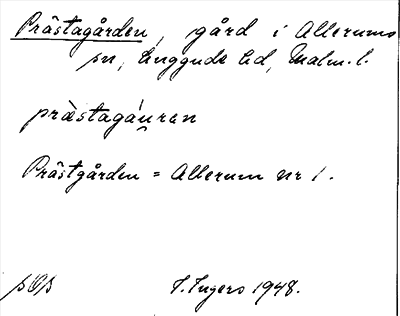 Prästagården, gård i Allerums
sn, Luggude hd, Malm. l.
prästagáu̯ren
Prästgården = Allerum nr 1.
I. Ingers 1948.